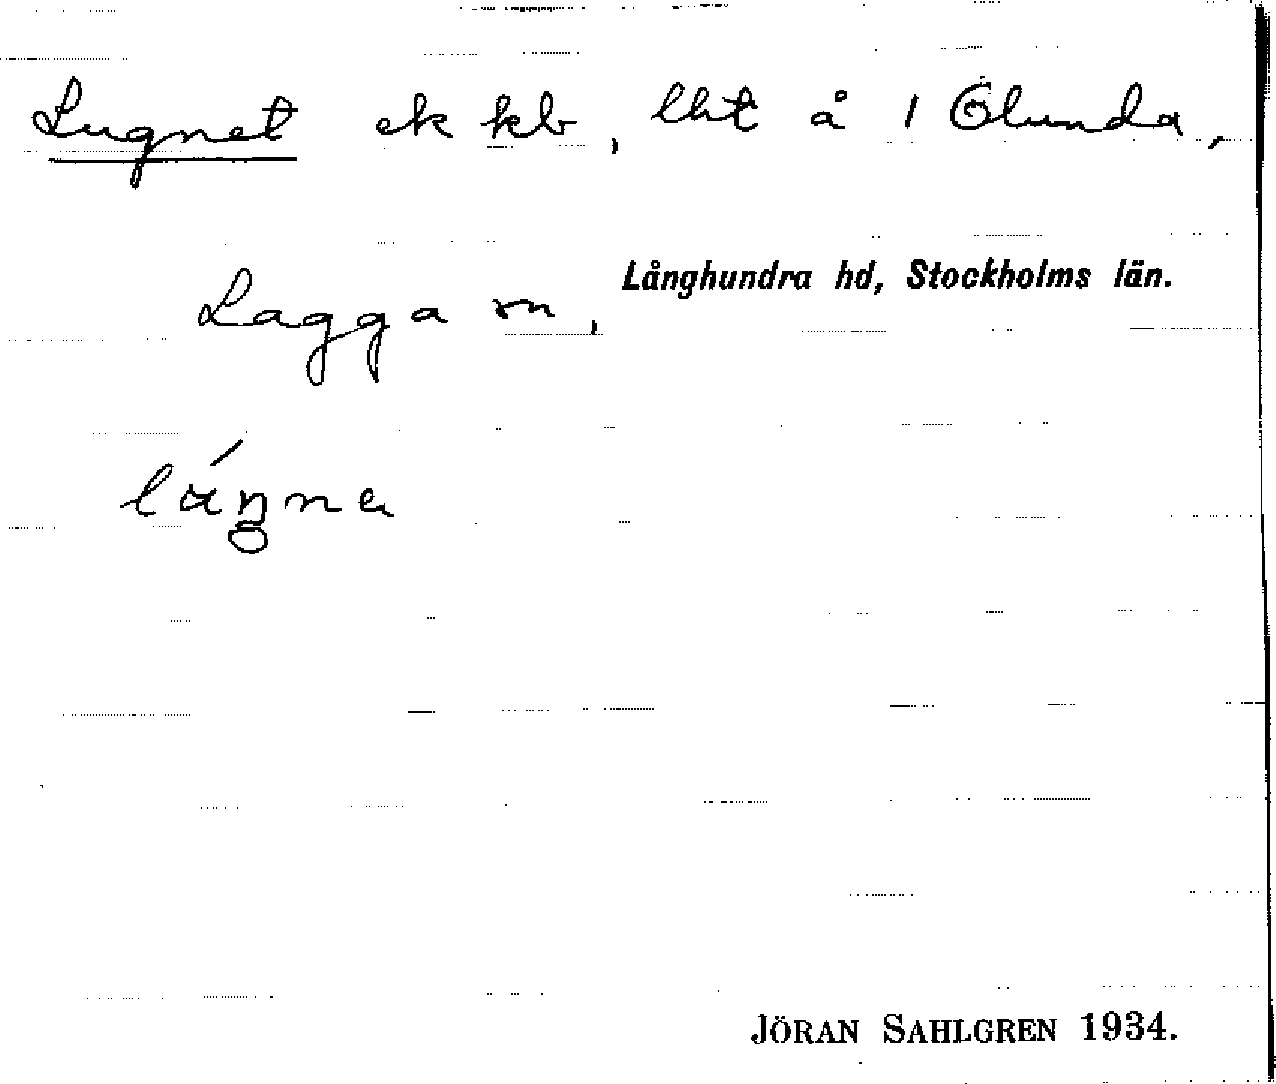 Lugnet ek kb, lht å 1 Ölunda,
Långhundra hd, Stockholms län.
Lagga sn,
JÖRAN SAHLGREN 1934.